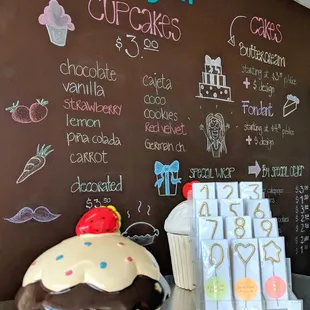 CUPCAKES
$3.00
chocolate
vanilla
strawberry
lemon
piña colada
carrot
cajeta
coco
cookies
Red velvet
German ch.
decorated
$3
cakes
Buttercream
starting at
+ $ design
Fondant
starting at
+ $ design
SPECIAL WRAP
BY SPECIAL ORDER
1 2 3
4 5 6
7 8 9
0